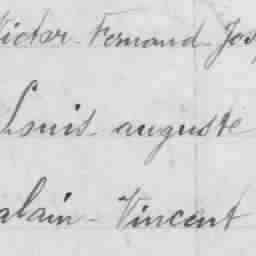 Victor Fernand Jos
Louis auguste
alain - Vincent